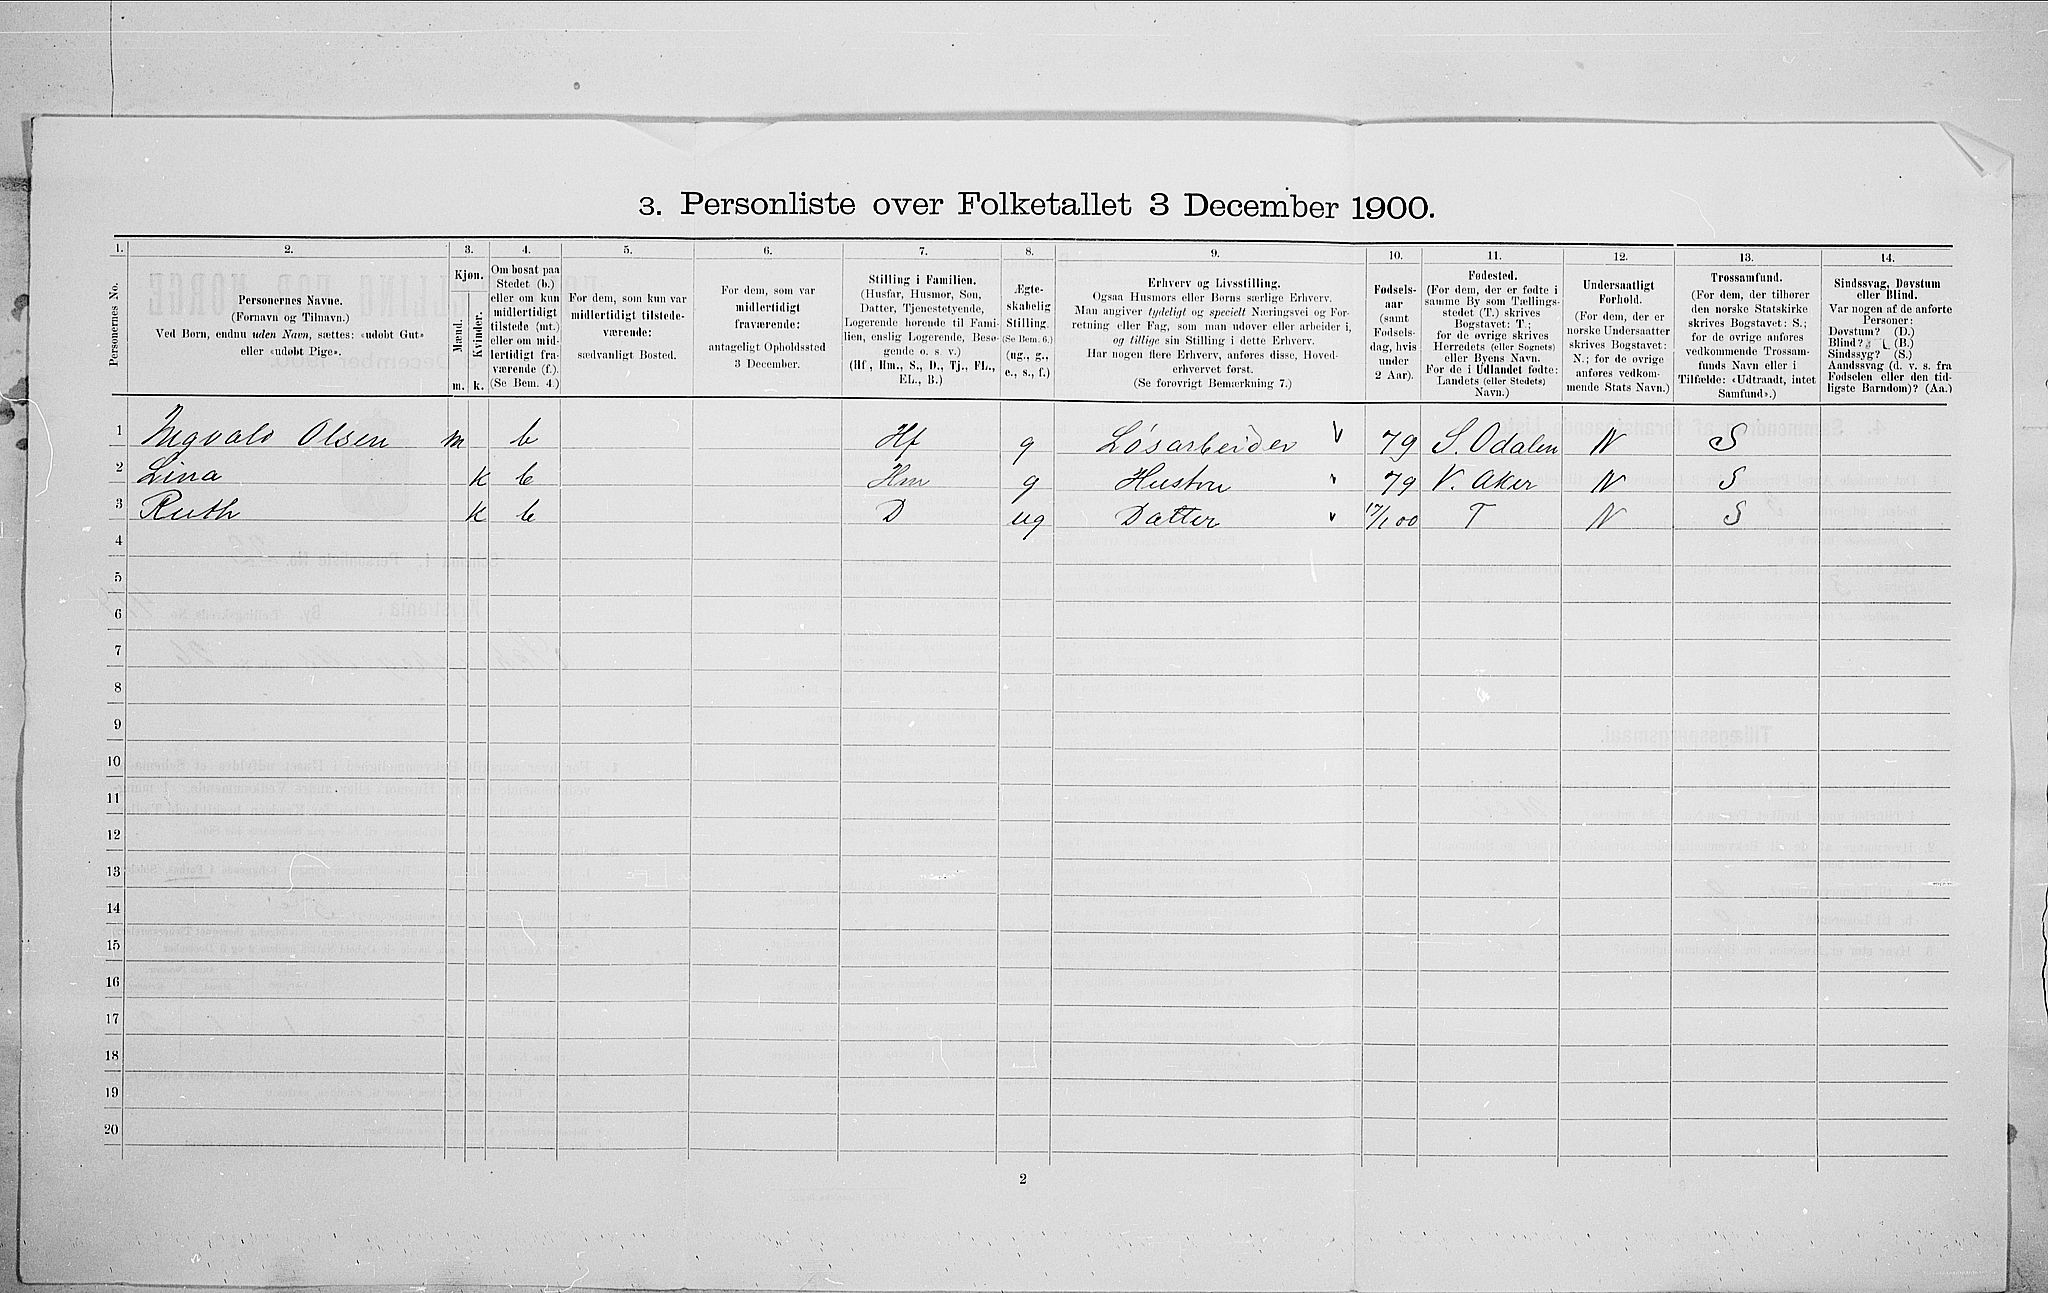 3. Personliste over Folketallet 3 December 1900.
1. 2. 3. 4. 5. 6. 7. 8. 9. 10. 11. 12. 13. 14.
Personernes No.
Personernes Navne.
(Fornavn og Tilnavn.)
Ved Børn, endnu uden Navn, sættes: «udøbt Gut»
eller «udøbt Pige».
Kjøn.
Mænd. Kvinder.
m. k.
Om bosat paa
Stedet (b.)
eller om kun
midlertidigt
tilstede (mt.)
eller om mid-
lertidigt fra-
værende (f.).
(Se Bem. 4.)
For dem, som kun var
midlertidigt tilstede-
værende:
sædvanligt Bosted.
For dem, som var
midlertidigt
fraværende:
antageligt Opholdssted
3 December.
Stilling i Familien.
(Husfar, Husmor, Søn,
Datter, Tjenestetyende,
Logerende hørende til Fami-
lien, enslig Logerende, Besø-
gende o. s. v.)
(Hf, Hm., S., D., Tj., FL.,
EL., B.)
Ægte-
skabelig
Stilling.
(Se Bem. 6.)
(ug., g.,
e., s., f.)
Erhverv og Livsstilling.
Ogsaa Husmors eller Børns særlige Erhverv.
Man angiver tydeligt og specielt Næringsvei og For-
retning eller Fag, som man udøver eller arbeider i,
og tillige sin Stilling i dette Erhverv.
Har nogen flere Erhverv, anføres disse, Hoved-
erhvervet først.
(Se forøvrigt Bemærkning 7.)
Fødsels-
aar
(samt
Fødsels-
dag, hvis
under
2 Aar).
Fødested.
(For dem, der er fødte i
samme By som Tællings-
stedet (T.) skrives
Bogstavet: T;
for de øvrige skrives
Herredets (eller Sognets)
eller Byens Navn.
For de i Udlandet fødte:
Landets (eller Stedets)
Navn.)
Undersaatligt
Forhold.
(For dem, der er
norske Undersaatter
skrives Bogstavet:
N.; for de øvrige
anføres vedkom-
mende Stats Navn.)
Trossamfund.
(For dem, der tilhører
den norske Statskirke
skrives Bogstavet: S.;
for de øvrige anføres
vedkommende Trossam-
funds Navn eller i
Tilfælde: «Udtraadt, intet
Samfund».)
Sindssvag, Døvstum
eller Blind.
Var nogen af de anførte
Personer:
Døvstum? (D.)
Blind? (B.)
Sindssyg? (S.)
Aandssvag (d. v. s. fra
Fødselen eller den tid-
ligste Barndom)? (Aa.)
1 Ingvald Olsen m b Hf g Løsarbeider 79 S. Odalen N S
2 Lina k b Hm g Hustru 79 V. Aker N S
3 Ruth k b D ug Datter 17/1 00 T N S
4
5
6
7
8
9
10
11
12
13
14
15
16
17
18
19
20
2